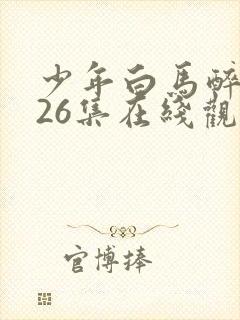 少年白馬醉
26集在綫觀
官博捧